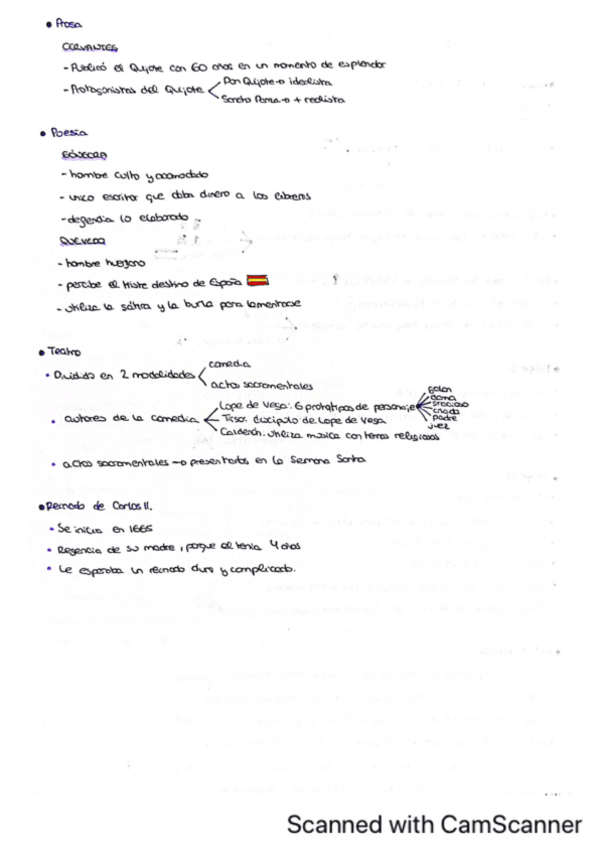 • Prosa
CERVANTES
- Publicó el Quijote con 60 años en un momento de esplendor
- Protagonistas del Quijote < Don Quijote → idealista
Sancho Panza → + realista
• Poesía
GÓNGORA
- hombre culto y acomodado
- unico escritor que daba dinero a los
- defendia lo elaborado
QUEVEDO
- hombre
- percibe el triste destino de España
- utiliza la sátira y la burla para lamentarse
• Teatro
• Dividido en 2 modalidades < comedia
actos sacramentales
• autores de la comedia < Lope de Vega: 6 prototipos de personaje < galan
dama
gracioso
criada
padre
juez
Tirso: discipulo de Lope de Vega
Calderón: utiliza musica con temas religiosos
• actos sacramentales → presentados en la Semana Santa
• Reinado de Carlos II.
• Se inicia en 1665
• Regencia de su madre, porque el tenia 4 años
• Le esperaba un reinado duro y complicado.
Scanned with CamScanner